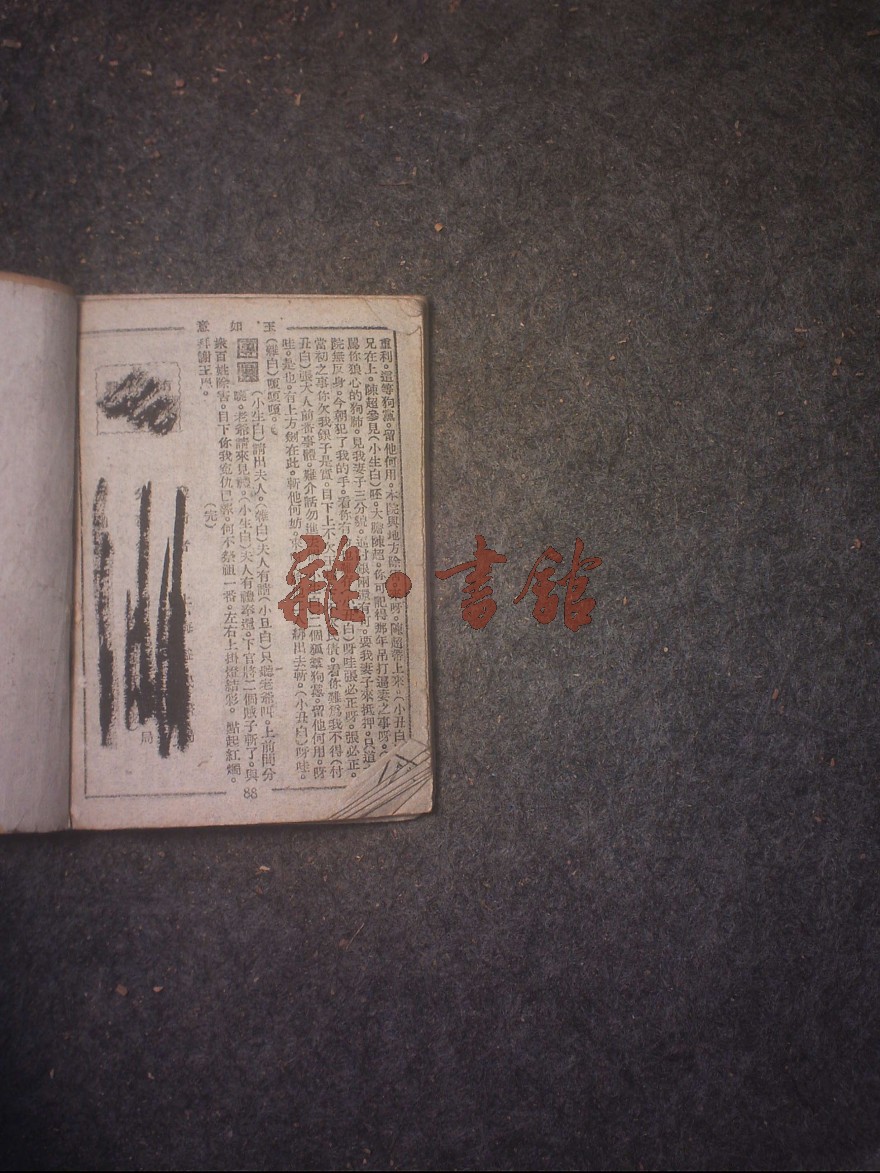 玉如意
重利。這等狗黨。留他何用。本院與地方除呀。陳超帶上來。(小丑白)
兄在上。陳超參見(小生白)呸。大膽陳超。你可記得那年吊打逼妻之事呀。
罵你狼心的狗肺。見我妻子三分貌。要我妻子來抵押。只道
院無反身。今朝犯了我的手。看你有白)呀哇張必正呀。張必正。
當初之事你欠我銀子是實。目下上不欠債。看你難為我不得(付
丑白)張大人前番事體。難介話勿進二個狐羣狗黨。留他何用。呀
哇。是也。有上方劍在此。斬他何妨。綁出去斬。(小丑白)呀哇。
(雜白)嗄嗄嗄。
團圓
(小生白)請出夫人。(雜白)夫人有請(小旦白)只聽老爺叫。上前問分
曉。老爺請來見禮。(小生白)夫人有禮奉還。下官將二個賊子斬了。與
衆百姓除害。目下你我寃仇已報。何不祭祖一番。左右上掛燈結彩。點起紅燭。
拜謝上
(完)
局
88
雜·書館